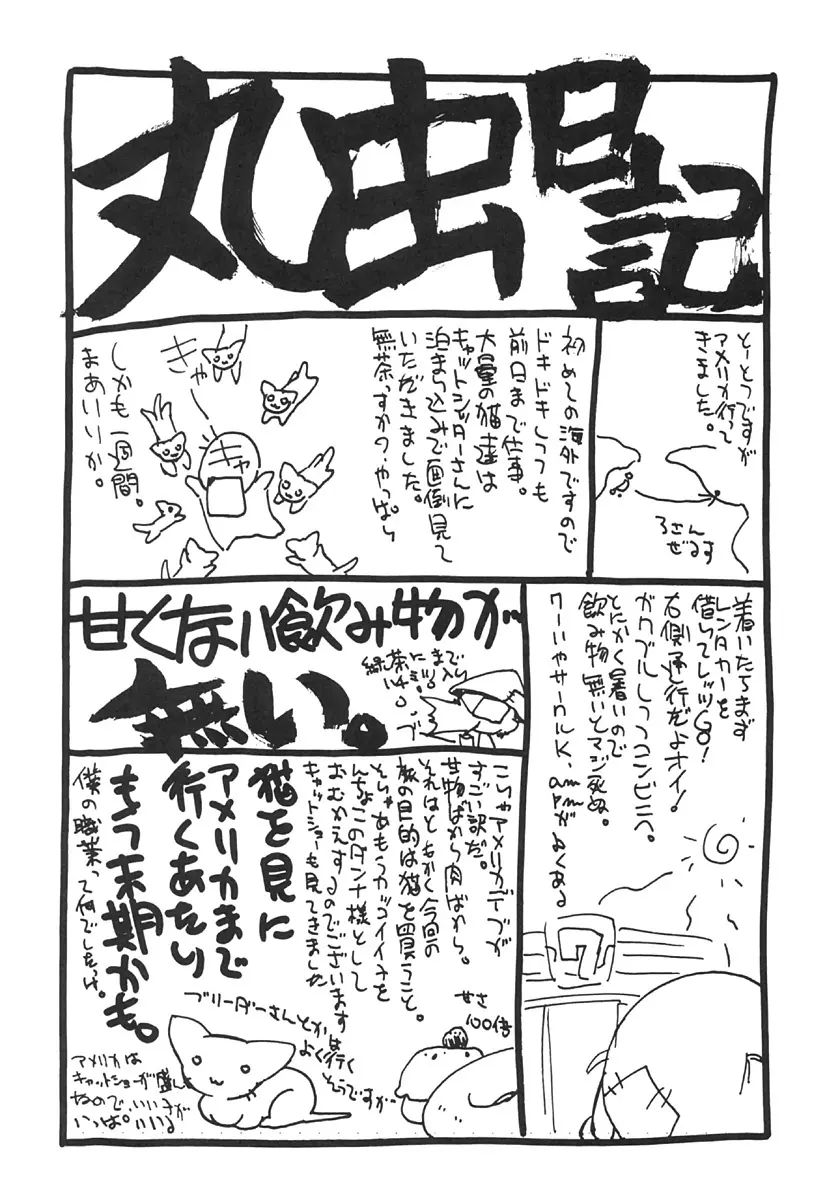 丸虫日記
とーとつですが
アメリカ行って
きました。
ろさん
ぜるす
初めての海外ですので
ドキドキしつつも
前日まで仕事。
大量の猫達は
キャットシッターさんに
泊まり込みで面倒見て
いただきました。
無茶っすか?やっぱり
きゃー
キャ
しかも一週間。
まあいいか。
着いたらまず
レンタカーを
借りてレッツGO!
右側通行だよオイ!
ガクブルしつつコンビニへ。
とにかく暑いので
飲み物無いとマジ死ぬ。
ワーいやサークルK、ampmがよくある
7
甘くない飲み物が
無い。
緑茶にまで
ハチミツ入り
こりゃアメリカデブが
すごい訳だ。
甘物ばかり肉ばかり。
それはともかく今回の
旅の目的は猫を買うこと。
そりゃあもうカッコイイ
んちょこのダンナ様として
おむかえするのでございます
キャットショーも見てきました
猫を見に
アメリカまで
行くあたり
もう末期かも。
僕の職業って何でしたっけ。
甘さ
100倍
ブリーダーさんとかは
よく行く
そうですが
アメリカは
キャットショーが盛ん
なので、いいコが
いっぱいいる